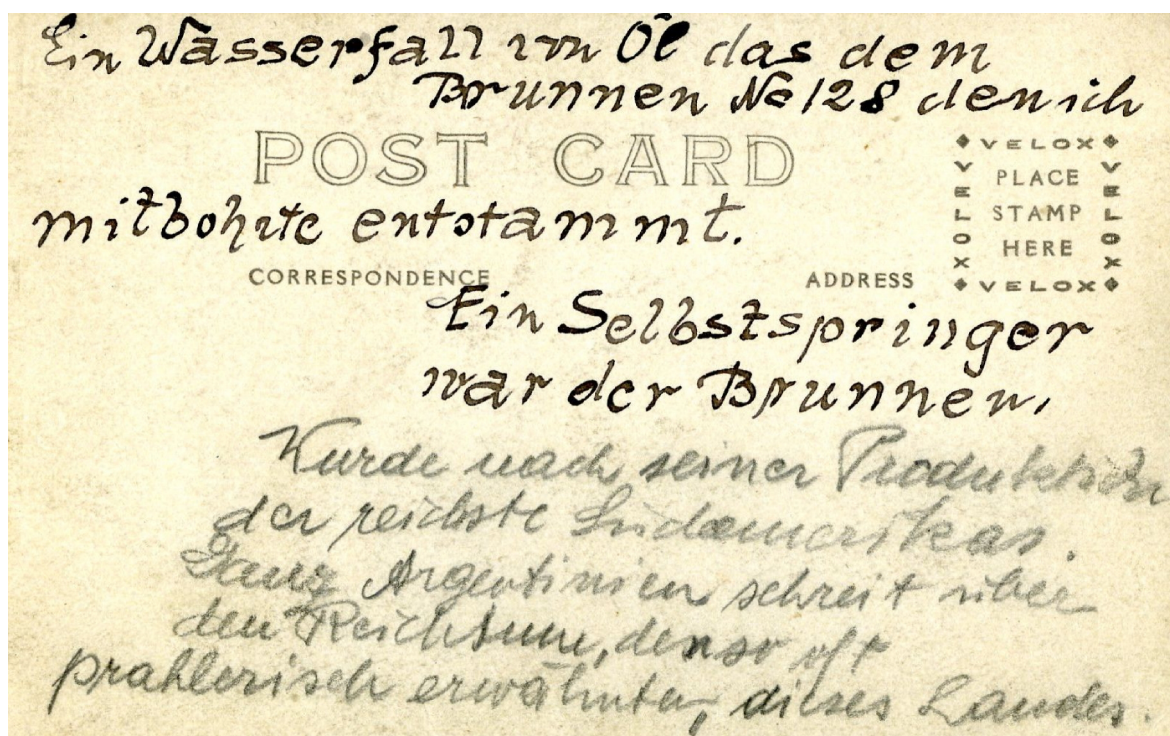 Ein Wasserfall von Öl das dem
Brunnen No 128 den ich
POST CARD
mitbohrte entstammt.
CORRESPONDENCE
ADDRESS
VELOX
VELOX
PLACE
STAMP
HERE
VELOX
VELOX
Ein Selbstspringer
war der Brunnen,
Wurde nach seiner Produktion
der reichste Südamerikas.
Ganz Argentinien schreit über
den Reichtum, den so oft
prahlerisch erwähnten, dieses Landes.